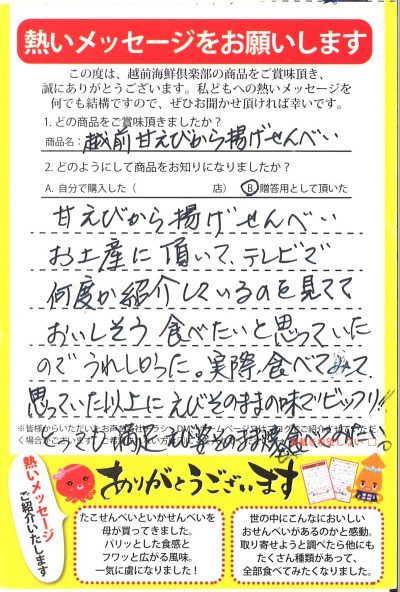 熱いメッセージをお願いします
この度は、越前海鮮倶楽部の商品をご賞味頂き、
誠にありがとうございます。私どもへの熱いメッセージを
何でも結構ですので、ぜひお聞かせ頂ければ幸いです。
1. どの商品をご賞味頂きましたか？
商品名： 越前甘えびから揚げせんべい
2. どのようにして商品をお知りになりましたか？
A. 自分で購入した（ 店） B 贈答用として頂いた
甘えびから揚げせんべい
お土産に頂いて、テレビで
何度か紹介しているのを見てて
おいしそう 食べたいと思っていた
のでうれしかった。実際、食べてみて
思っていた以上にえびそのままの味でビックリ!!
とっても満足
※皆様からいただいたお声
を希望しない □
熱いメッセージ
ご紹介いたします
ありがとうございます
たこせんべいといかせんべいを
母が買ってきました。
パリッとした食感と
フワッと広がる風味。
一気に虜になりました！
世の中にこんなにおいしい
おせんべいがあるのかと感動。
取り寄せようと調べたら他にも
たくさん種類があって、
全部食べてみたくなりました。